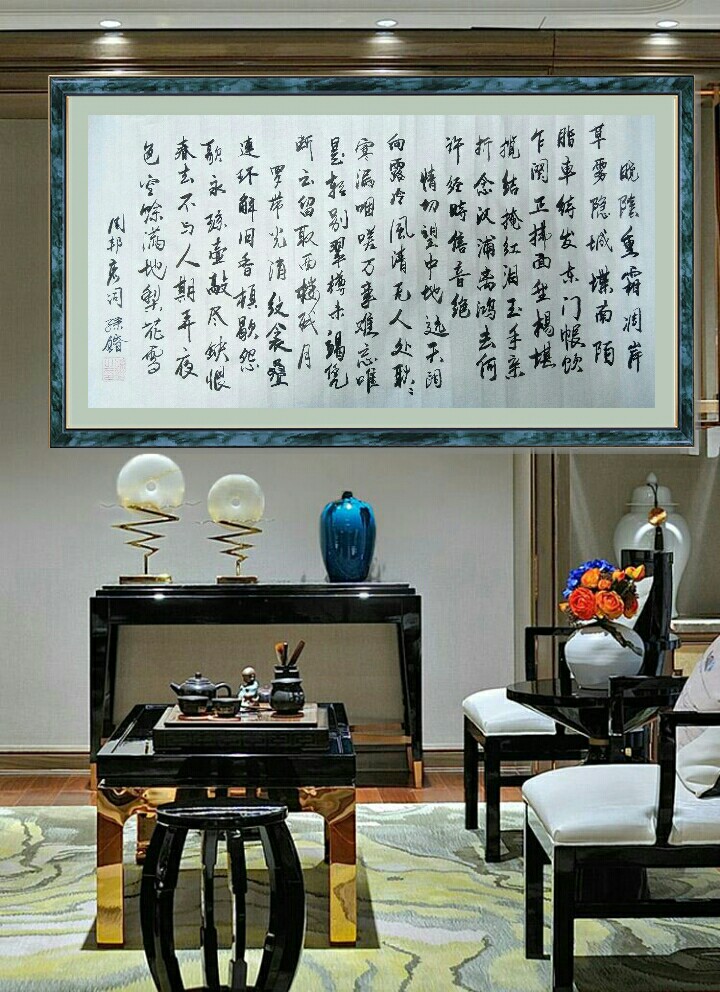 晚陰重霜凋岸
草雾隐城堞南陌
脂車待发东门帳饮
乍阕正拂面垂楊堪
揽结掩红泪玉手亲
折念汉浦离鸿去何
许经時信音绝
情切望中地远天阔
向露冷风清无人处耿〻
寒漏咽嗟万事难忘唯
是轻别翠樽未竭凭
断云留取西楼残月
罗带光消纹衾叠
连环解旧香顿歇怨
歌永琼壶敲尽缺恨
春去不与人期弄夜
色空馀满地梨花雪
周邦彦词